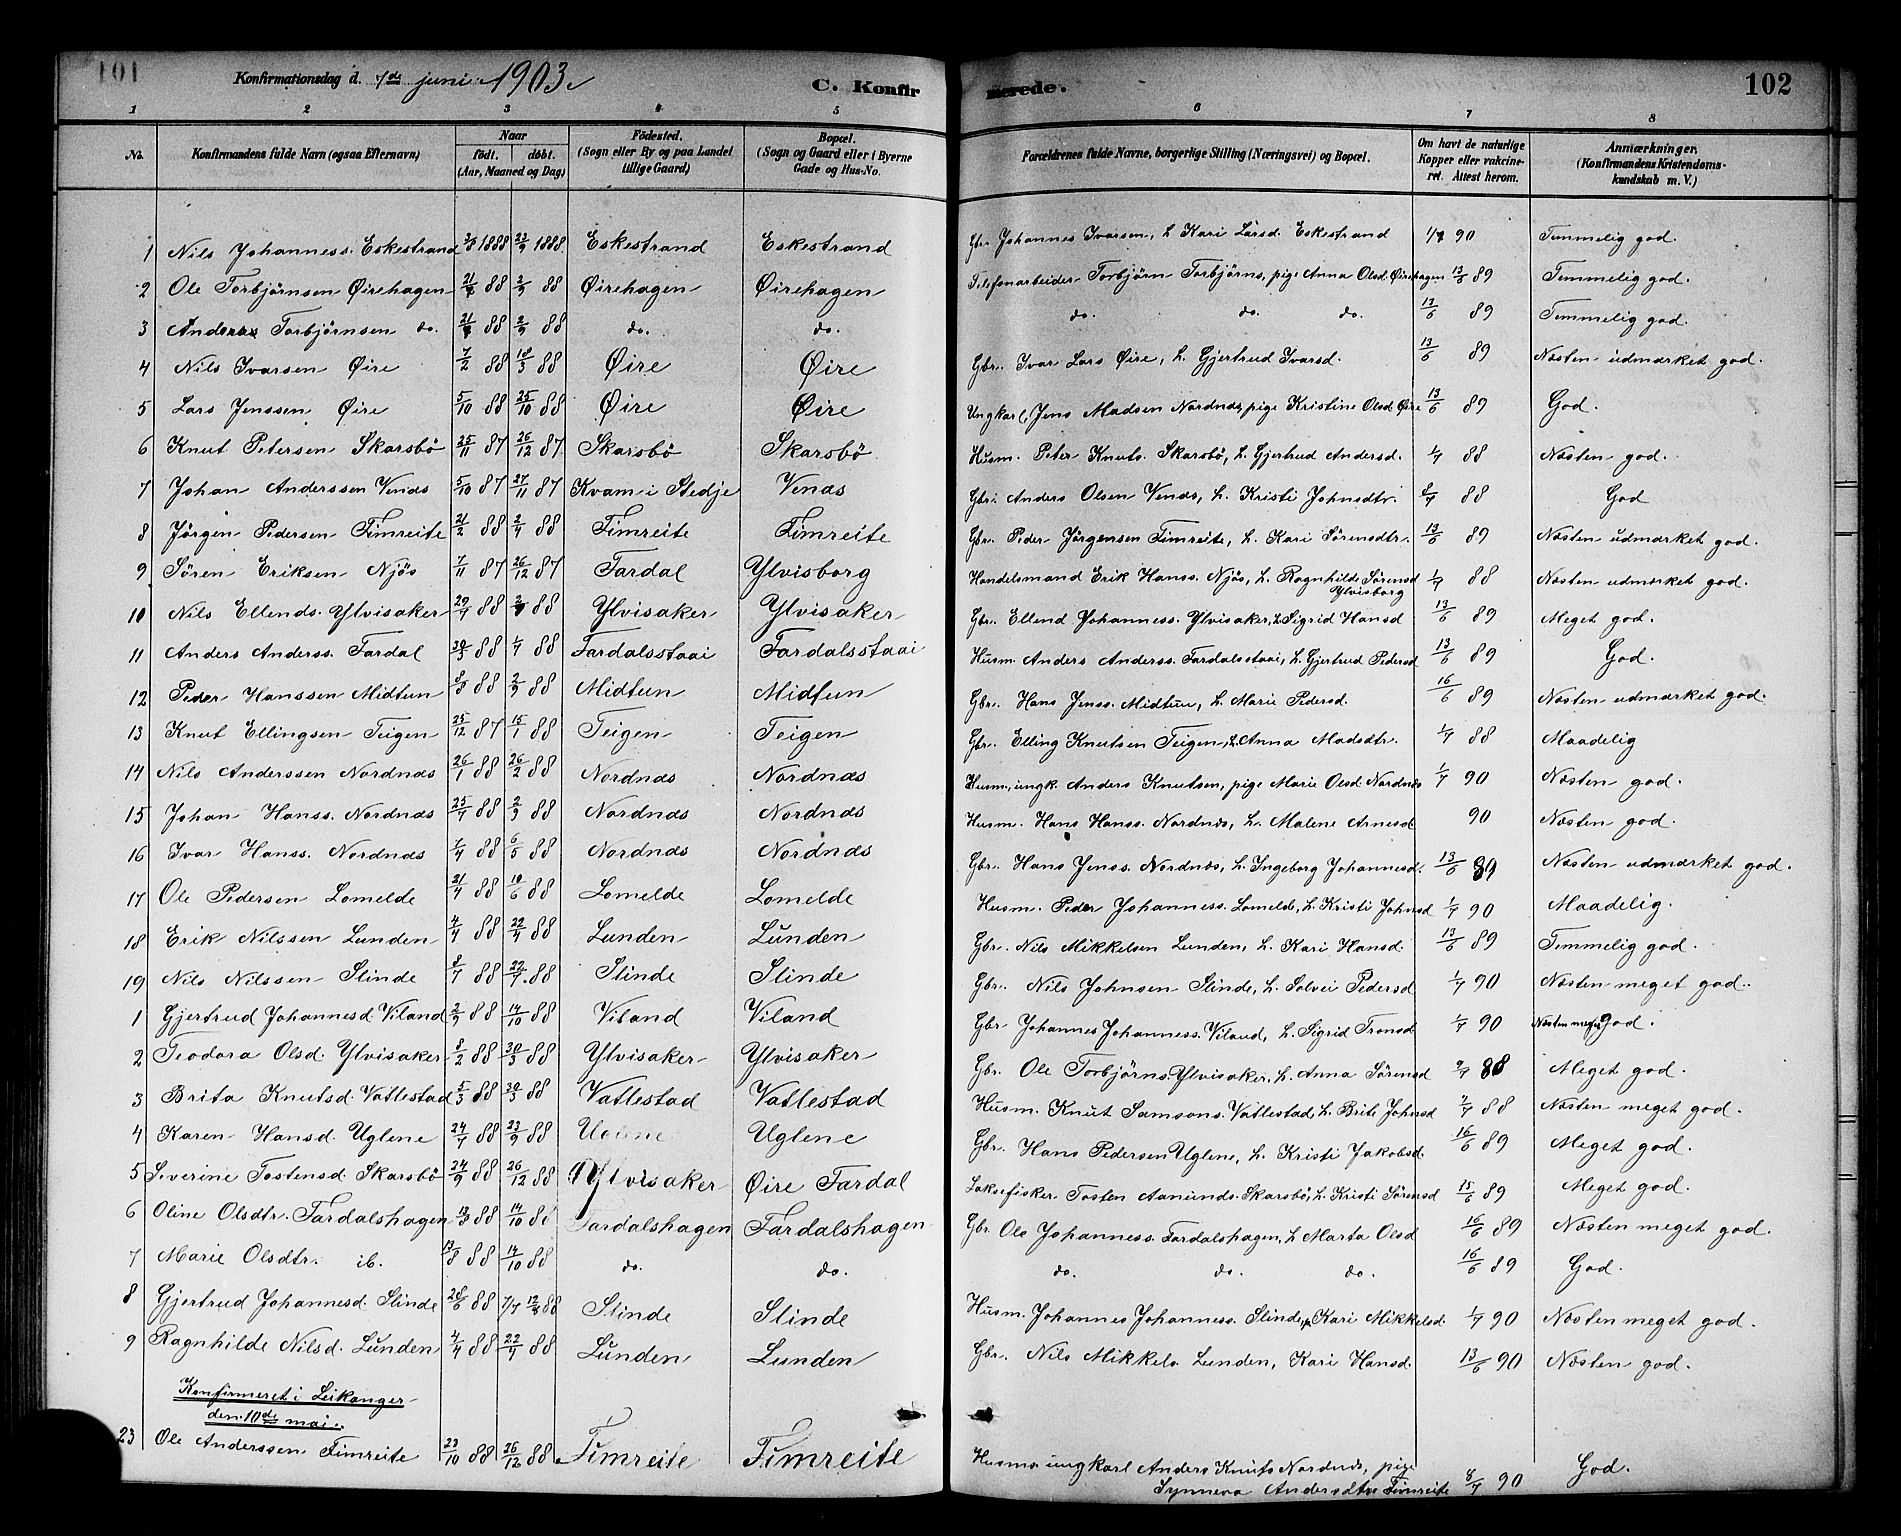 101
Konfirmationsdag d. 1de juni 1903.
C. Konfirmerede.
102
1 2 3 4 5 6 7 8
No. Konfirmandens fulde Navn (ogsaa Efternavn) Naar födt. döbt. (Aar, Maaned og Dag) Födested. (Sogn eller By og paa Landet tillige Gaard) Bopæl. (Sogn og Gaard eller i Byerne Gade og Hus-No. Forældrenes fulde Navne, borgerlige Stilling (Næringsvei) og Bopæl. Om havt de naturlige Kopper eller vakcineret. Attest herom. Anmærkninger. (Konfirmandens Kristendomskundskab m. V.)
1 Nils Johanness. Eskestrand 1888 23/9 1888. Eskestrand Eskestrand Gbr. Johannes Ivarsen, h. Kari Larsd. Eskestrand 90 Temmelig god.
2 Ole Torbjörnsen Øirehagen 88 2/9 88 Øirehagen Øirehagen Telefonarbeider Torbjörn Torbjörns, pige Anna Olsd. Øirehagen 13/6 89 Temmelig god.
3 Torbjörnsen do. 88 2/9 88 do. do. do. do. do. 13/6 89 Temmelig god.
4 Nils Ivarsen Øire 7/2 88 18/3 88 Øire Øire Gbr. Ivar Lars Øire, h. Gjertrud Ivarsd. 13/6 89 Næsten udmærket god.
5 Lars Jenssen Øire 5/10 88 25/10 88 Øire Øire Ungkarl, Jens Madsen Nordnæs, pige Kristine Olsd. Øire 13/6 89 God.
6 Knut Petersen Skarsbö 25/11 87 26/12 87. Skarsbö Skarsbö Husm. Peter Knuts. Skarsbö, h. Gjertrud Andersd. 1/7 88 Næsten god.
7 Johan Anderssen Venæs 5/10 87 27/11 87 Kvam i Stedje Venæs Gbr. Anders Olsen Venæs, h. Kristi Johnsdtr. 88 God
8 Jörgen Pedersen Fimreite 21/2 88 2/4 88 Fimreite Fimreite Gbr. Peder Jörgensen Fimreite, h. Kari Sörensdtr. 13/6 89 Næsten udmærket god.
9 Sören Eriksen Njös 7/11 87 26/12 87 Fardal Ylvisborg Handelsmand Erik Hanss. Njös, h. Ragnhilde Sörensd Ylvisborg 1/7 88 Næsten udmærket god.
10 Nils Ellends. Ylvisaker 29/7 88 88 Ylvisaker Ylvisaker Gbr. Ellend Johanness. Ylvisaker, h. Sigrid Hansd 13/6 89 Meget god.
11 Anders Anderss. Fardal 30/3 88 88 Fardalsstaai Fardalsstaai Husm. Anders Anderss. Fardalsstaai, h. Gjertrud Pedersd 13/6 89 God.
12 Peder Hanssen Midtun 88 2/9 88 Midtun Midtun Gbr. Hans Jenss. Midtun, h. Marie Pedersd. 16/6 89 Næsten udmærket god.
13 Knut Ellingsen Teigen 25/12 87 15/1 88 Teigen Teigen Gbr. Elling Knutsen Teigen, h. Anna Madsdtr. 1/7 88 Maadelig
14 Nils Anderssen Nordnæs 26/1 88 26/2 88 Nordnæs Nordnæs Husm., ungk. Anders Knutsen, pige Marie Olsd. Nordnæs 1/7 90 Næsten god.
15 Johan Hanss. Nordnæs 25/7 88 2/9 88 Nordnæs Nordnæs Husm. Hans Hanss. Nordnæs, h. Malene Arnesd 90 Næsten god.
16 Ivar Hanss. Nordnæs 1/4 88 6/5 88 Nordnæs Nordnæs Gbr. Hans Jenss. Nordnæs, h. Ingeborg Johannesd. 13/6 89 Næsten udmærket god.
17 Ole Pedersen Lomelde 21/4 88 10/6 88 Lomelde Lomelde Husm. Peder Johanness. Lomelde, h. Kristi Johnsd 1/7 90 Maadelig.
18 Erik Nilssen Lunden 4/4 88 22/4 88 Lunden Lunden Gbr. Nils Mikkelsen Lunden, h. Kari Hansd. 13/6 89 Temmelig god.
19 Nils Nilssen Slinde 8/7 88 22/7 88 Slinde Slinde Gbr. Nils Johnsen Slinde, h. Solvei Pedersd 1/7 90 Næsten meget god.
1 Gjertrud Johannesd. Viland 2/9 88 14/10 88 Viland Viland Gbr. Johannes Johanness. Viland, h. Sigrid Tronsd 1/7 90 Næsten meget God.
2 Teodora Olsd. Ylvisaker 8/2 88 30/3 88 Ylvisaker Ylvisaker Gbr. Ole Torbjörns. Ylvisaker, h. Anna Sörensd 88 Meget god.
3 Brita Knutsd. Vatlestad 5/3 88 30/3 88 Vatlestad Vatlestad Husm. Knut Samsons. Vatlestad, h. Brite Johnsd 88 Næsten meget god.
4 Karen Hansd. Uglene 24/7 88 23/9 88 Uglene Uglene Gbr. Hans Pedersen Uglene, h. Kristi Jakobsd. 16/6 89 Meget god.
5 Severine Tostensd. Skarsbö 24/9 88 26/12 88 Ylvisaker Øire Fardal Laksefisker Tosten Aamunds. Skarsbö, h. Kristi Sörensd 15/6 89 Meget god.
6 Oline Olsdtr. Fardalshagen 13/8 88 14/10 88 Fardalshagen Fardalshagen Gbr. Ole Johanness. Fardalshagen, h. Marta Olsd 16/6 89 Næsten meget god.
7 Marie Olsdtr. ib. 13/8 88 14/10 88 do. do. do. do. do. 16/6 89 God.
8 Gjertrud Johannesd. Slinde 88 88 Slinde Slinde Husm. Johannes Johanness. Slinde, Kari Mikkelsd. 1/7 90 Næsten meget god.
9 Ragnhilde Nilsd. Lunden 4/4 88 88 Lunden Lunden Gbr. Nils Mikkels. Lunden, Kari Hansd. 13/6 90 Næsten god.
Konfirmeret i Leikanger
den 10de mai.
23 Ole Anderssen Fimreite 23/10 88 26/12 88 Fimreite Fimreite Husm. ungkarl Anders Knuts Nordnæs, pige
Synneva Andersdtr Fimreite 8/7 90 God.